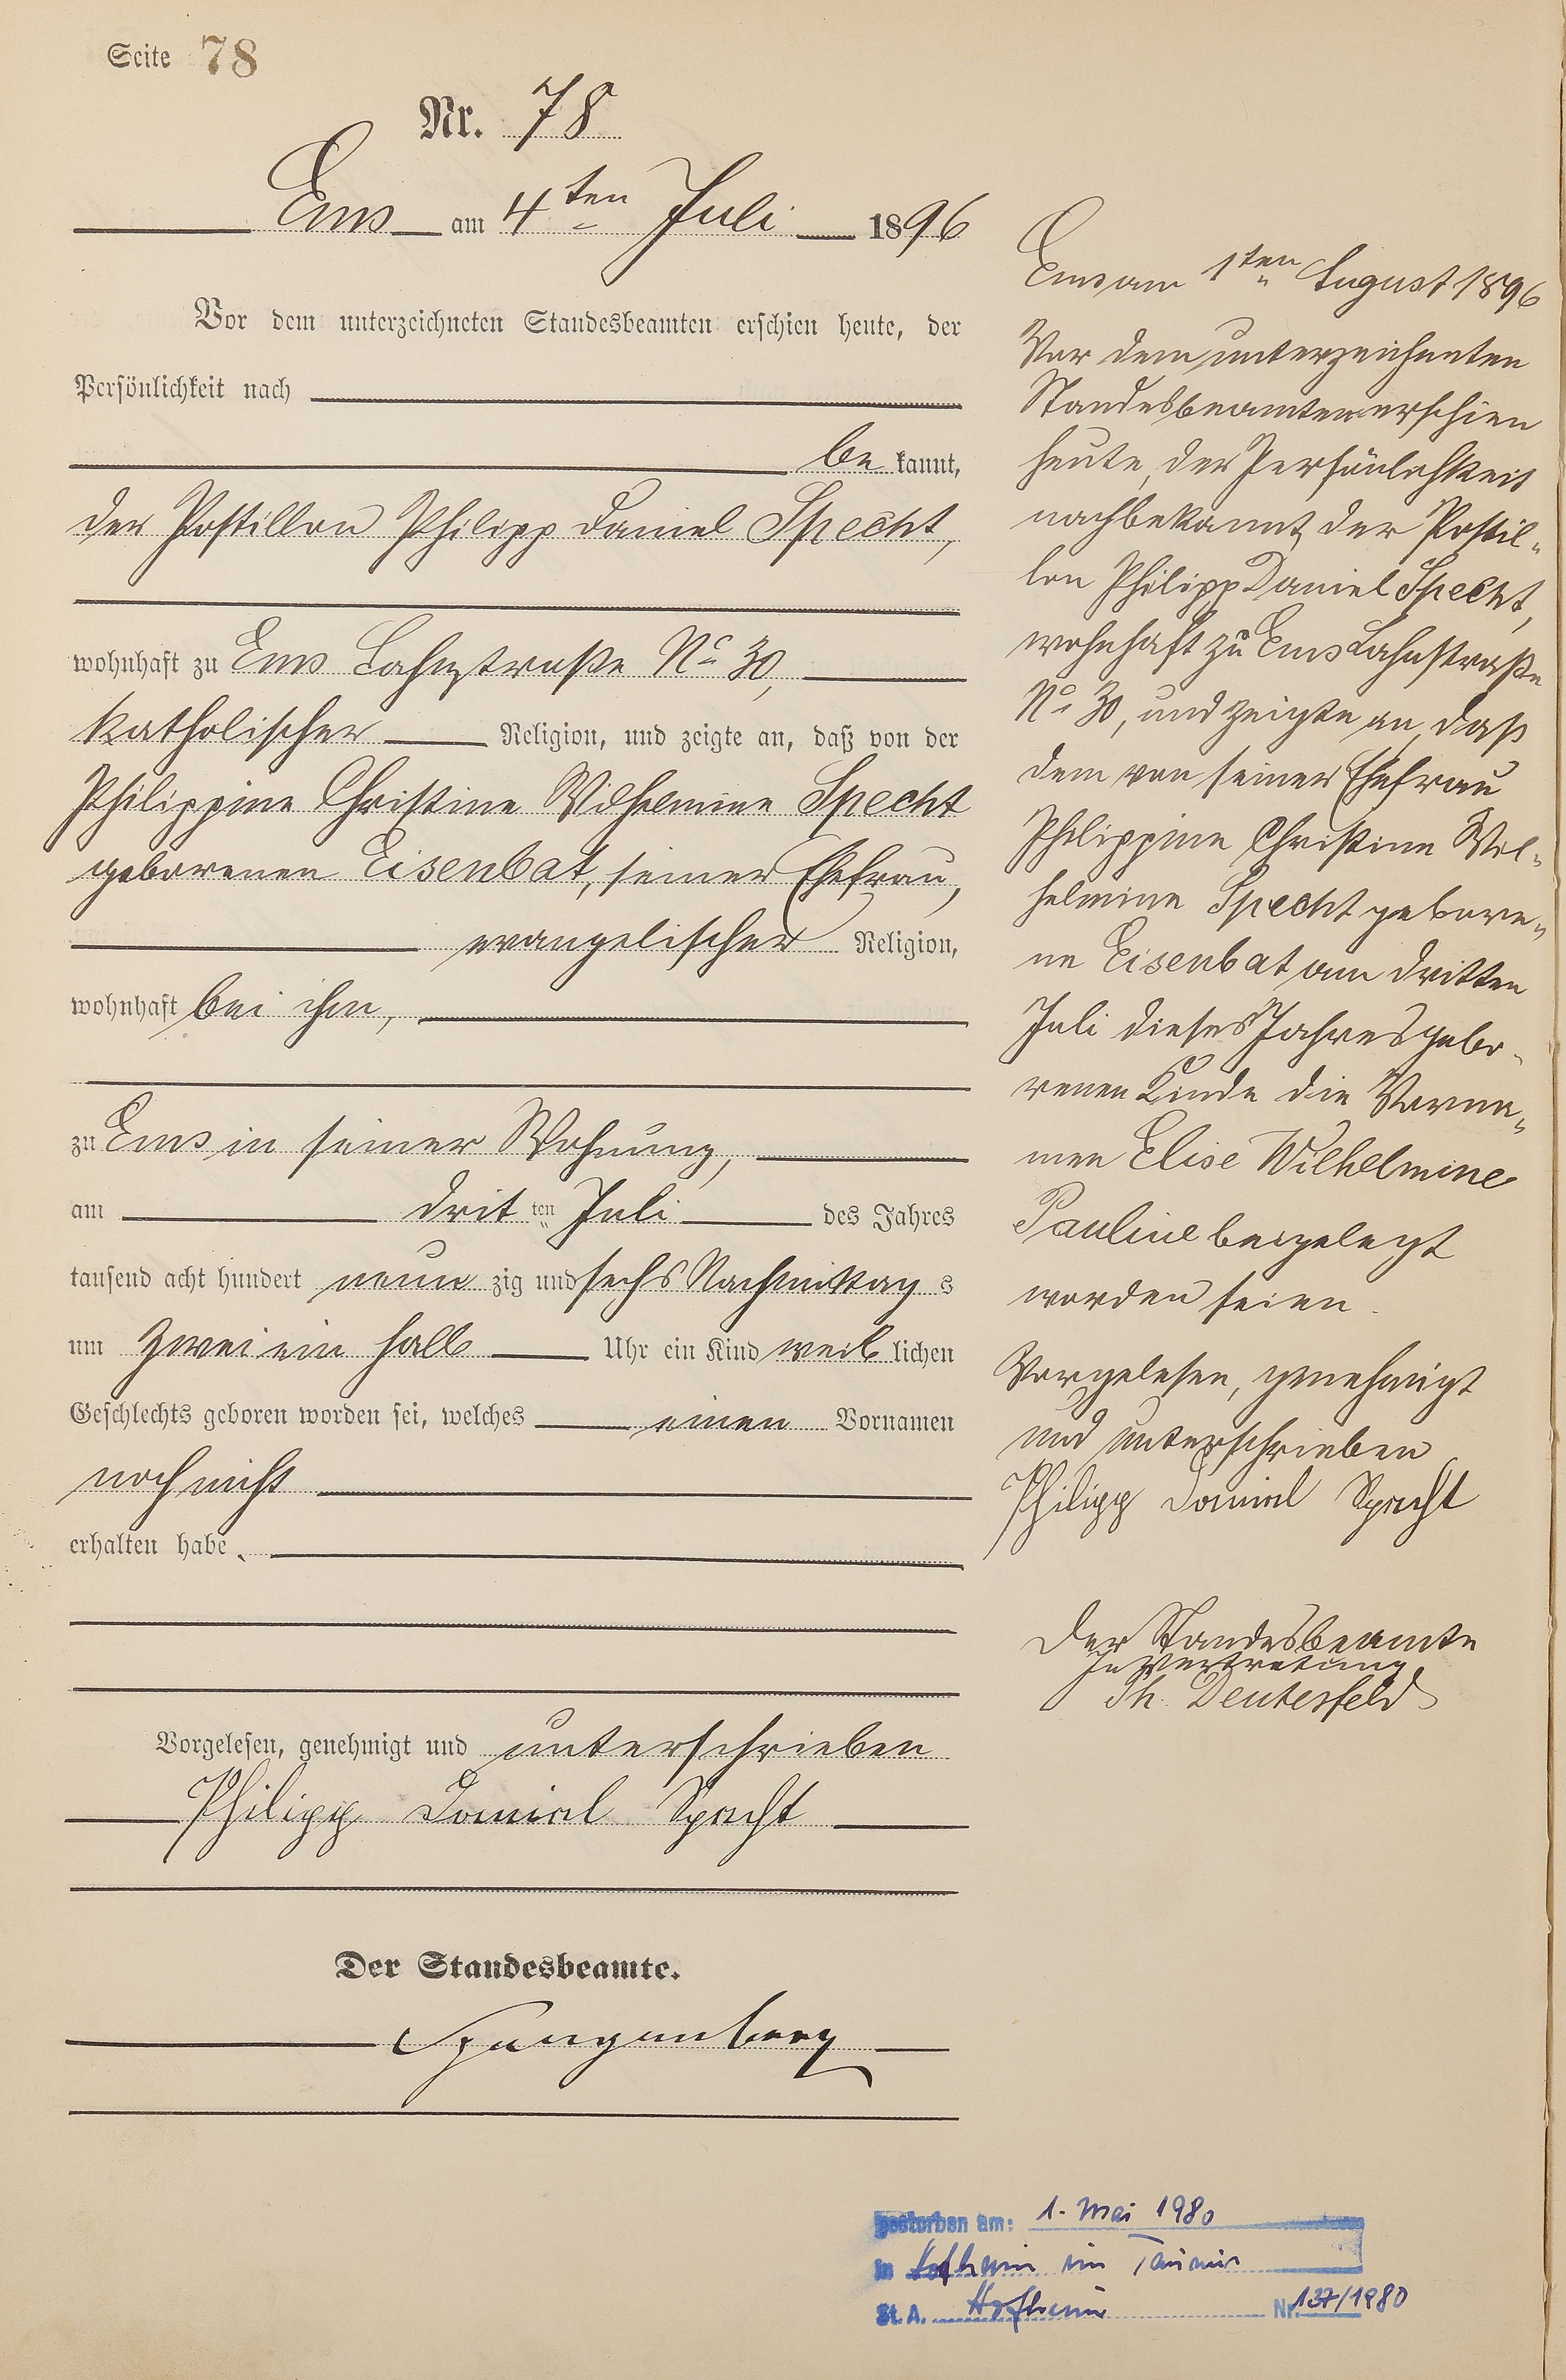 Seite 78
Nr. 78
Ems am 4ten Juli 1896
Vor dem unterzeichneten Standesbeamten erschien heute, der
Persönlichkeit nach
be kannt,
der Postillon Philipp Daniel Specht,
wohnhaft zu Ems Lahnstraße No 30,
katholischer Religion, und zeigte an, daß von der
Philippine Christine Wilhelmine Specht
geborenen Eisenbat, seiner Ehefrau,
evangelischer Religion,
wohnhaft bei ihm,
zu Ems in seiner Wohnung,
am drit ten Juli des Jahres
tausend acht hundert neun zig und sechs Nachmittag s
um zwei ein halb Uhr ein Kind weib lichen
Geschlechts geboren worden sei, welches einen Vornamen
noch nicht
erhalten habe.
Vorgelesen, genehmigt und unterschrieben
Philipp Daniel Specht
Der Standesbeamte.
Spangenberg
Ems am 1ten August 1896
Vor dem unterzeichneten
Standesbeamten erschien
heute, der Persönlichkeit
nach bekannt, der Postil-
lon Philipp Daniel Specht,
wohnhaft zu Ems Lahnstraße
No 30, und zeigte an, daß
dem von seiner Ehefrau
Philippine Christine Wil-
helmine Specht gebore-
ne Eisenbat am dritten
Juli dieses Jahres gebo-
renen Kinde die Vorna-
men Elise Wilhelmine
Pauline beigelegt
worden seien.
Vorgelesen, genehmigt
und unterschrieben
Philipp Daniel Specht
Der Standesbeamte
In Vertretung
Ph. Deutesfeld
gestorben am: 1. Mai 1980
in Hofheim am Taunus
St. A. Hofheim Nr. 137/1980